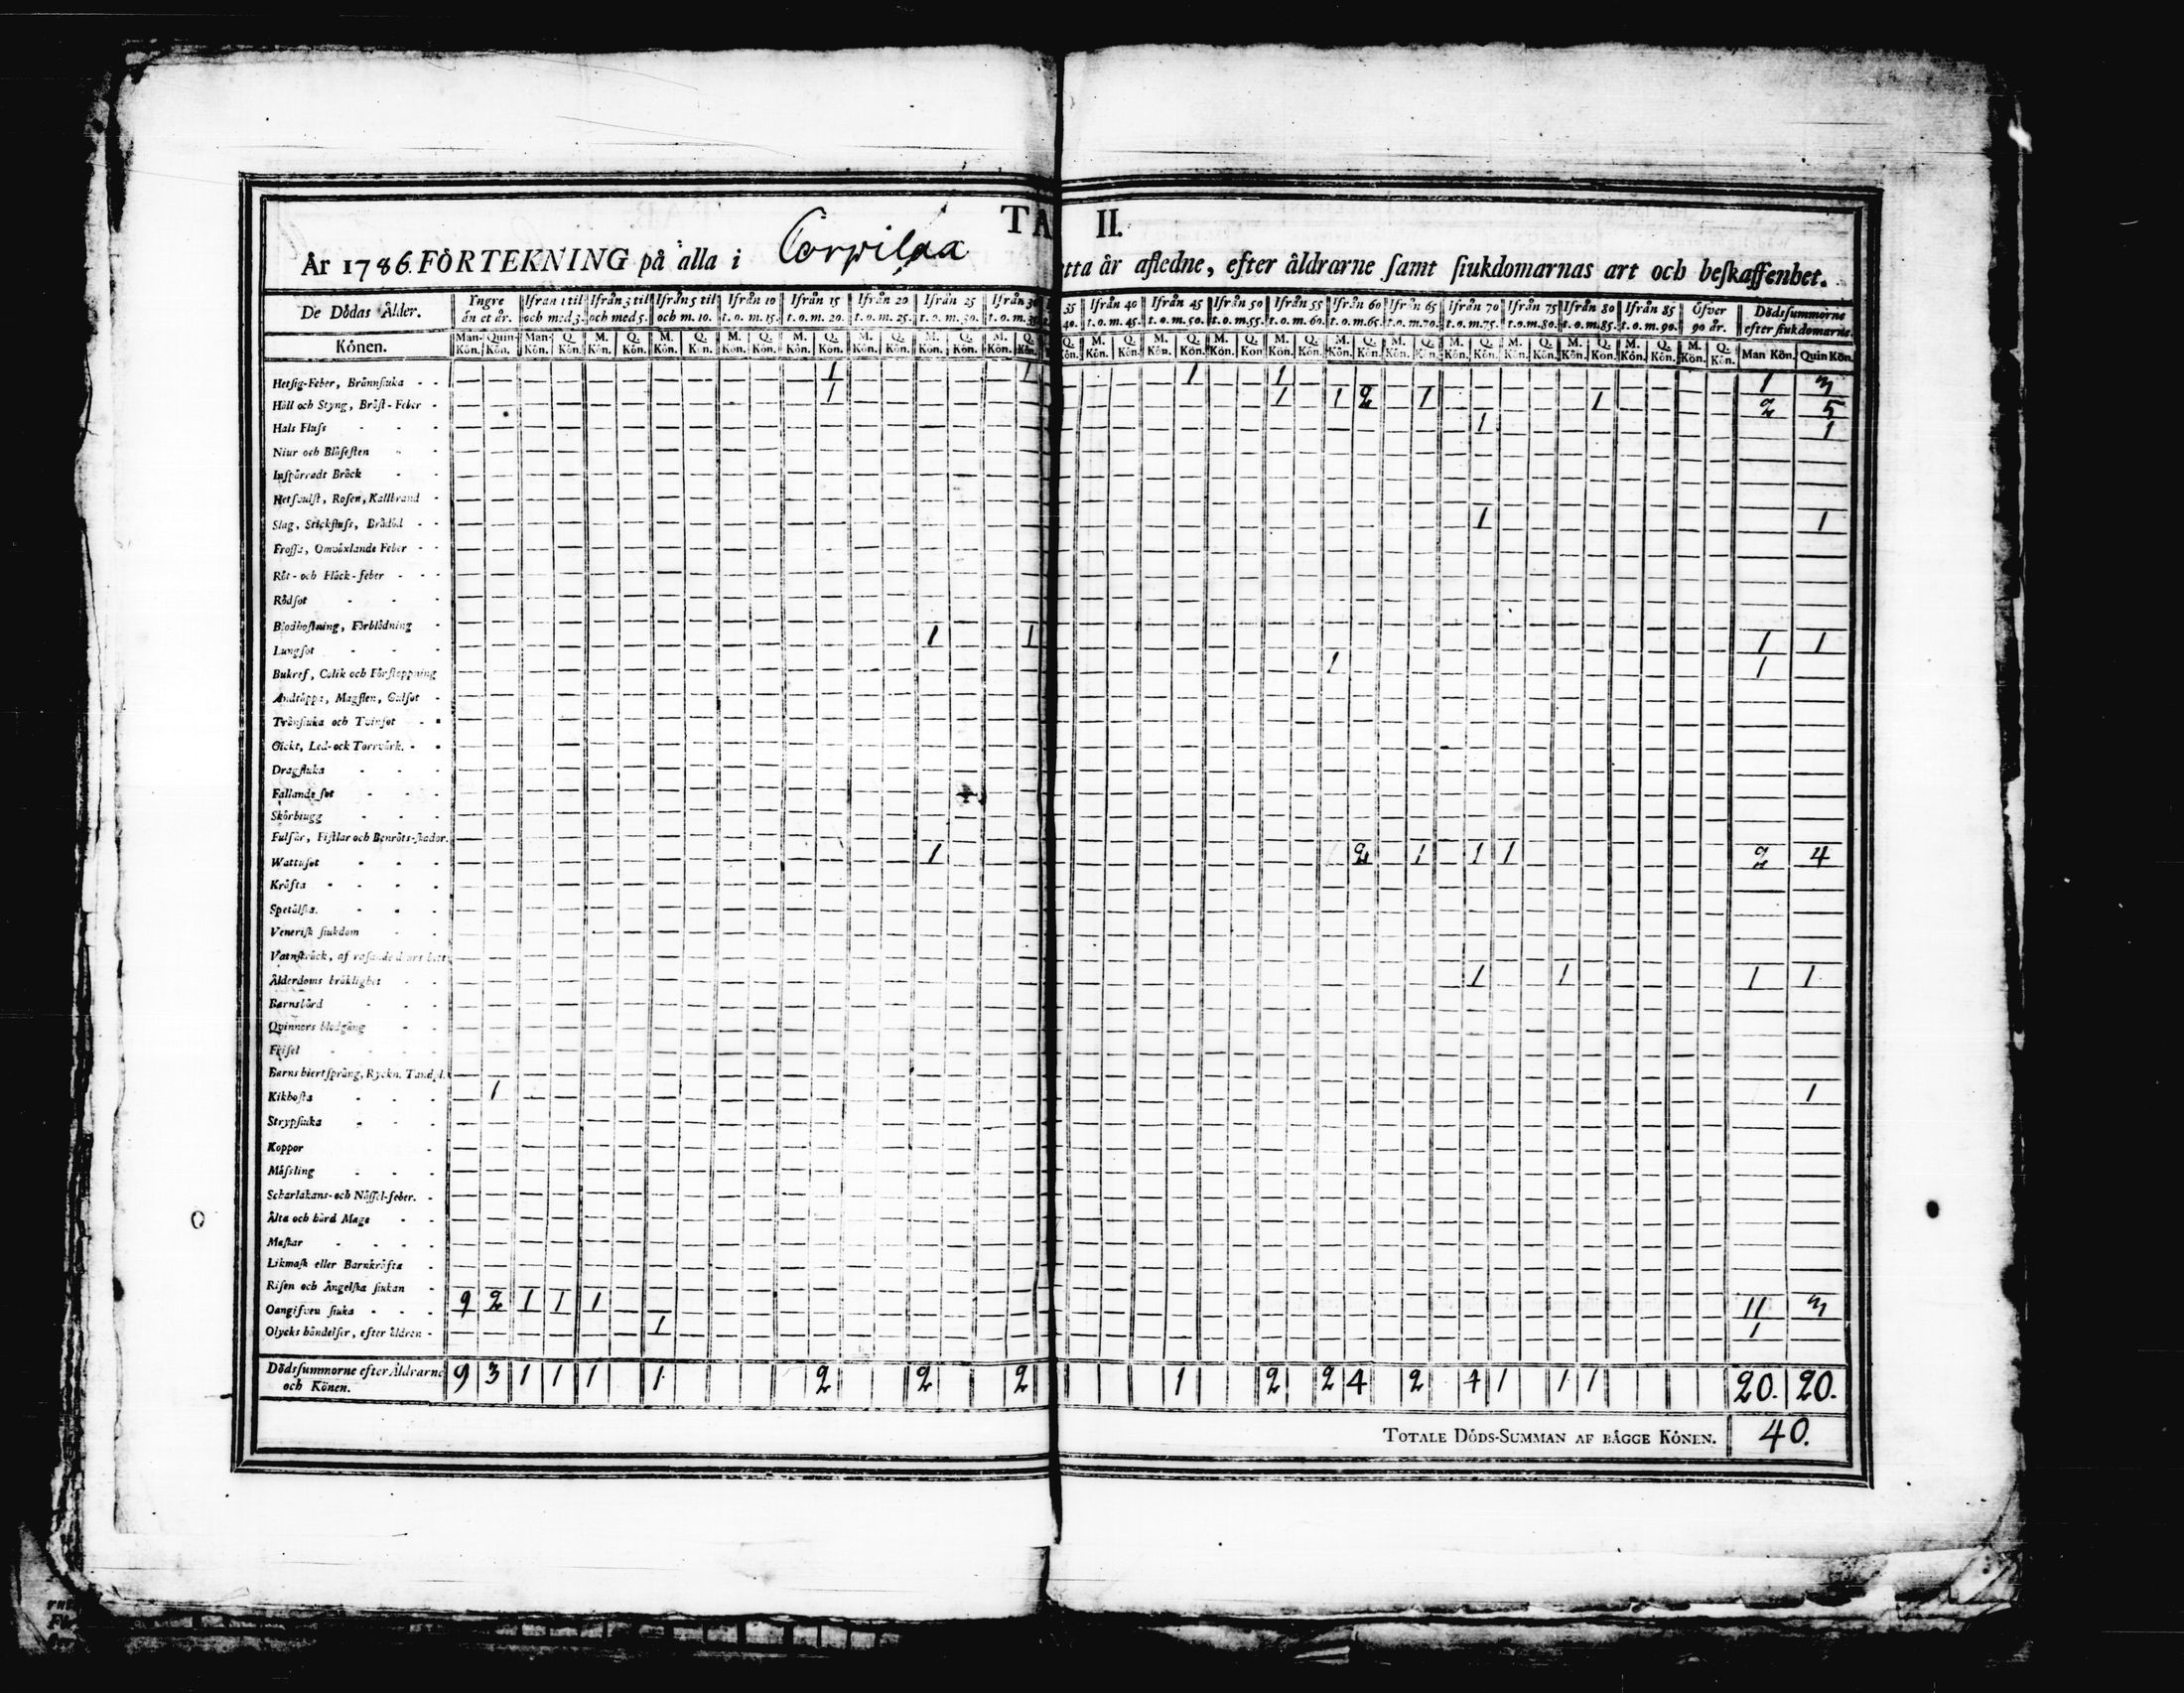 TA II.
År 1786. FÖRTEKNING på alla i Corpilax
etta år afledne, efter åldrarne samt siukdomarnas art och beskaffenhet.
De Dödas Ålder. Yngre än et år. Ifrån 1 til och med 3. Ifrån 3 til och med 5. Ifrån 5 til och m. 10. Ifrån 10 t. o. m. 15. Ifrån 15 t. o. m. 20. Ifrån 20 t. o. m. 25. Ifrån 25 t. o. m. 30. Ifrån 30 t. o. m. 35. 35 40. Ifrån 40 t. o. m. 45. Ifrån 45 t. o. m. 50. Ifrån 50 t. o. m. 55. Ifrån 55 t. o. m. 60. Ifrån 60 t. o. m. 65. Ifrån 65 t. o. m. 70. Ifrån 70 t. o. m. 75. Ifrån 75 t. o. m. 80. Ifrån 80 t. o. m. 85. Ifrån 85 t. o. m. 90. Öfver 90 år. Dödssummorne efter siukdomarne.
Könen. Man-Kön. Quin-Kön. Man-Kön. Q. Kön. M. Kön. Q. Kön. M. Kön. Q. Kön. M. Kön. Q. Kön. M. Kön. Q. Kön. M. Kön. Q. Kön. M. Kön. Q. Kön. M. Kön. Q. Kön. Q. Kön. M. Kön. Q. Kön. M. Kön. Q. Kön. M. Kön. Q. Kön. M. Kön. Q. Kön. M. Kön. Q. Kön. M. Kön. Q. Kön. M. Kön. Q. Kön. M. Kön. Q. Kön. M. Kön. Q. Kön. M. Kön. Q. Kön. M. Kön. Q. Kön. Man Kön. Quin Kön.
Hetsig-Feber, Brännsiuka 1 1 1 1 1 3
Håll och Styng, Bröst-Feber 1 1 1 2 1 1 2 5
Hals Fluss 1 1
Niur och Blåsesten
Inspärradt Bråck
Hetsvulst, Rosen, Kallbrand
Slag, Stickfluss, Brådöd 1 1
Frossa, Omväxlande Feber
Röt- och Fläck-feber
Rödsot
Blodhostning, Förblödning
Lungsot 1 1 1 1
Bukref, Colik och Förstoppning 1 1
Andtäppa, Magsten, Gulsot
Trånsiuka och Tvinsot
Gickt, Led-och Torrvärk.
Dragsiuka
Fallande sot
Skörbiugg
Fulsår, Fistlar och Benröts-skador.
Wattusot 1 1 2 1 1 1 2 4
Kräfta
Spetälska.
Venerisk siukdom
Vatnskräck, af rasande diurs bett
Ålderdoms bräklighet 1 1 1 1
Barnsbörd
Qvinnors blodgång
Frisel
Barns hiertsprång, Ryckn. Tandsl.
Kikhosta 1 1
Strypsiuka
Koppor
Mässling
Scharlakans-och Nässel-feber.
Älta och hård Mage
Maskar
Likmask eller Barnkräfta
Risen och Ångelska siukan
Oangifven siuka 9 2 1 1 1 11 3
Olycks händelser, efter åldren 1 1
Dödssummorne efter Åldrarne och Könen. 9 3 1 1 1 1 2 2 2 1 2 2 4 2 4 1 1 1 20. 20.
TOTALE DÖDS-SUMMAN AF BÄGGE KÖNEN. 40.